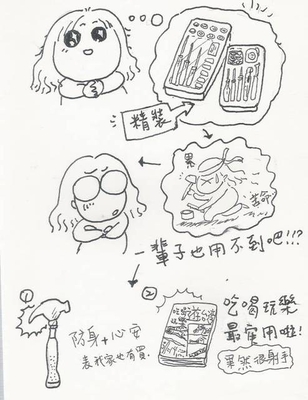 精裝
累
一輩子也用不到吧!!!?
①
防身+心安
表我家也有買.
②
吃喝玩樂
最實用啦!
果然很射手